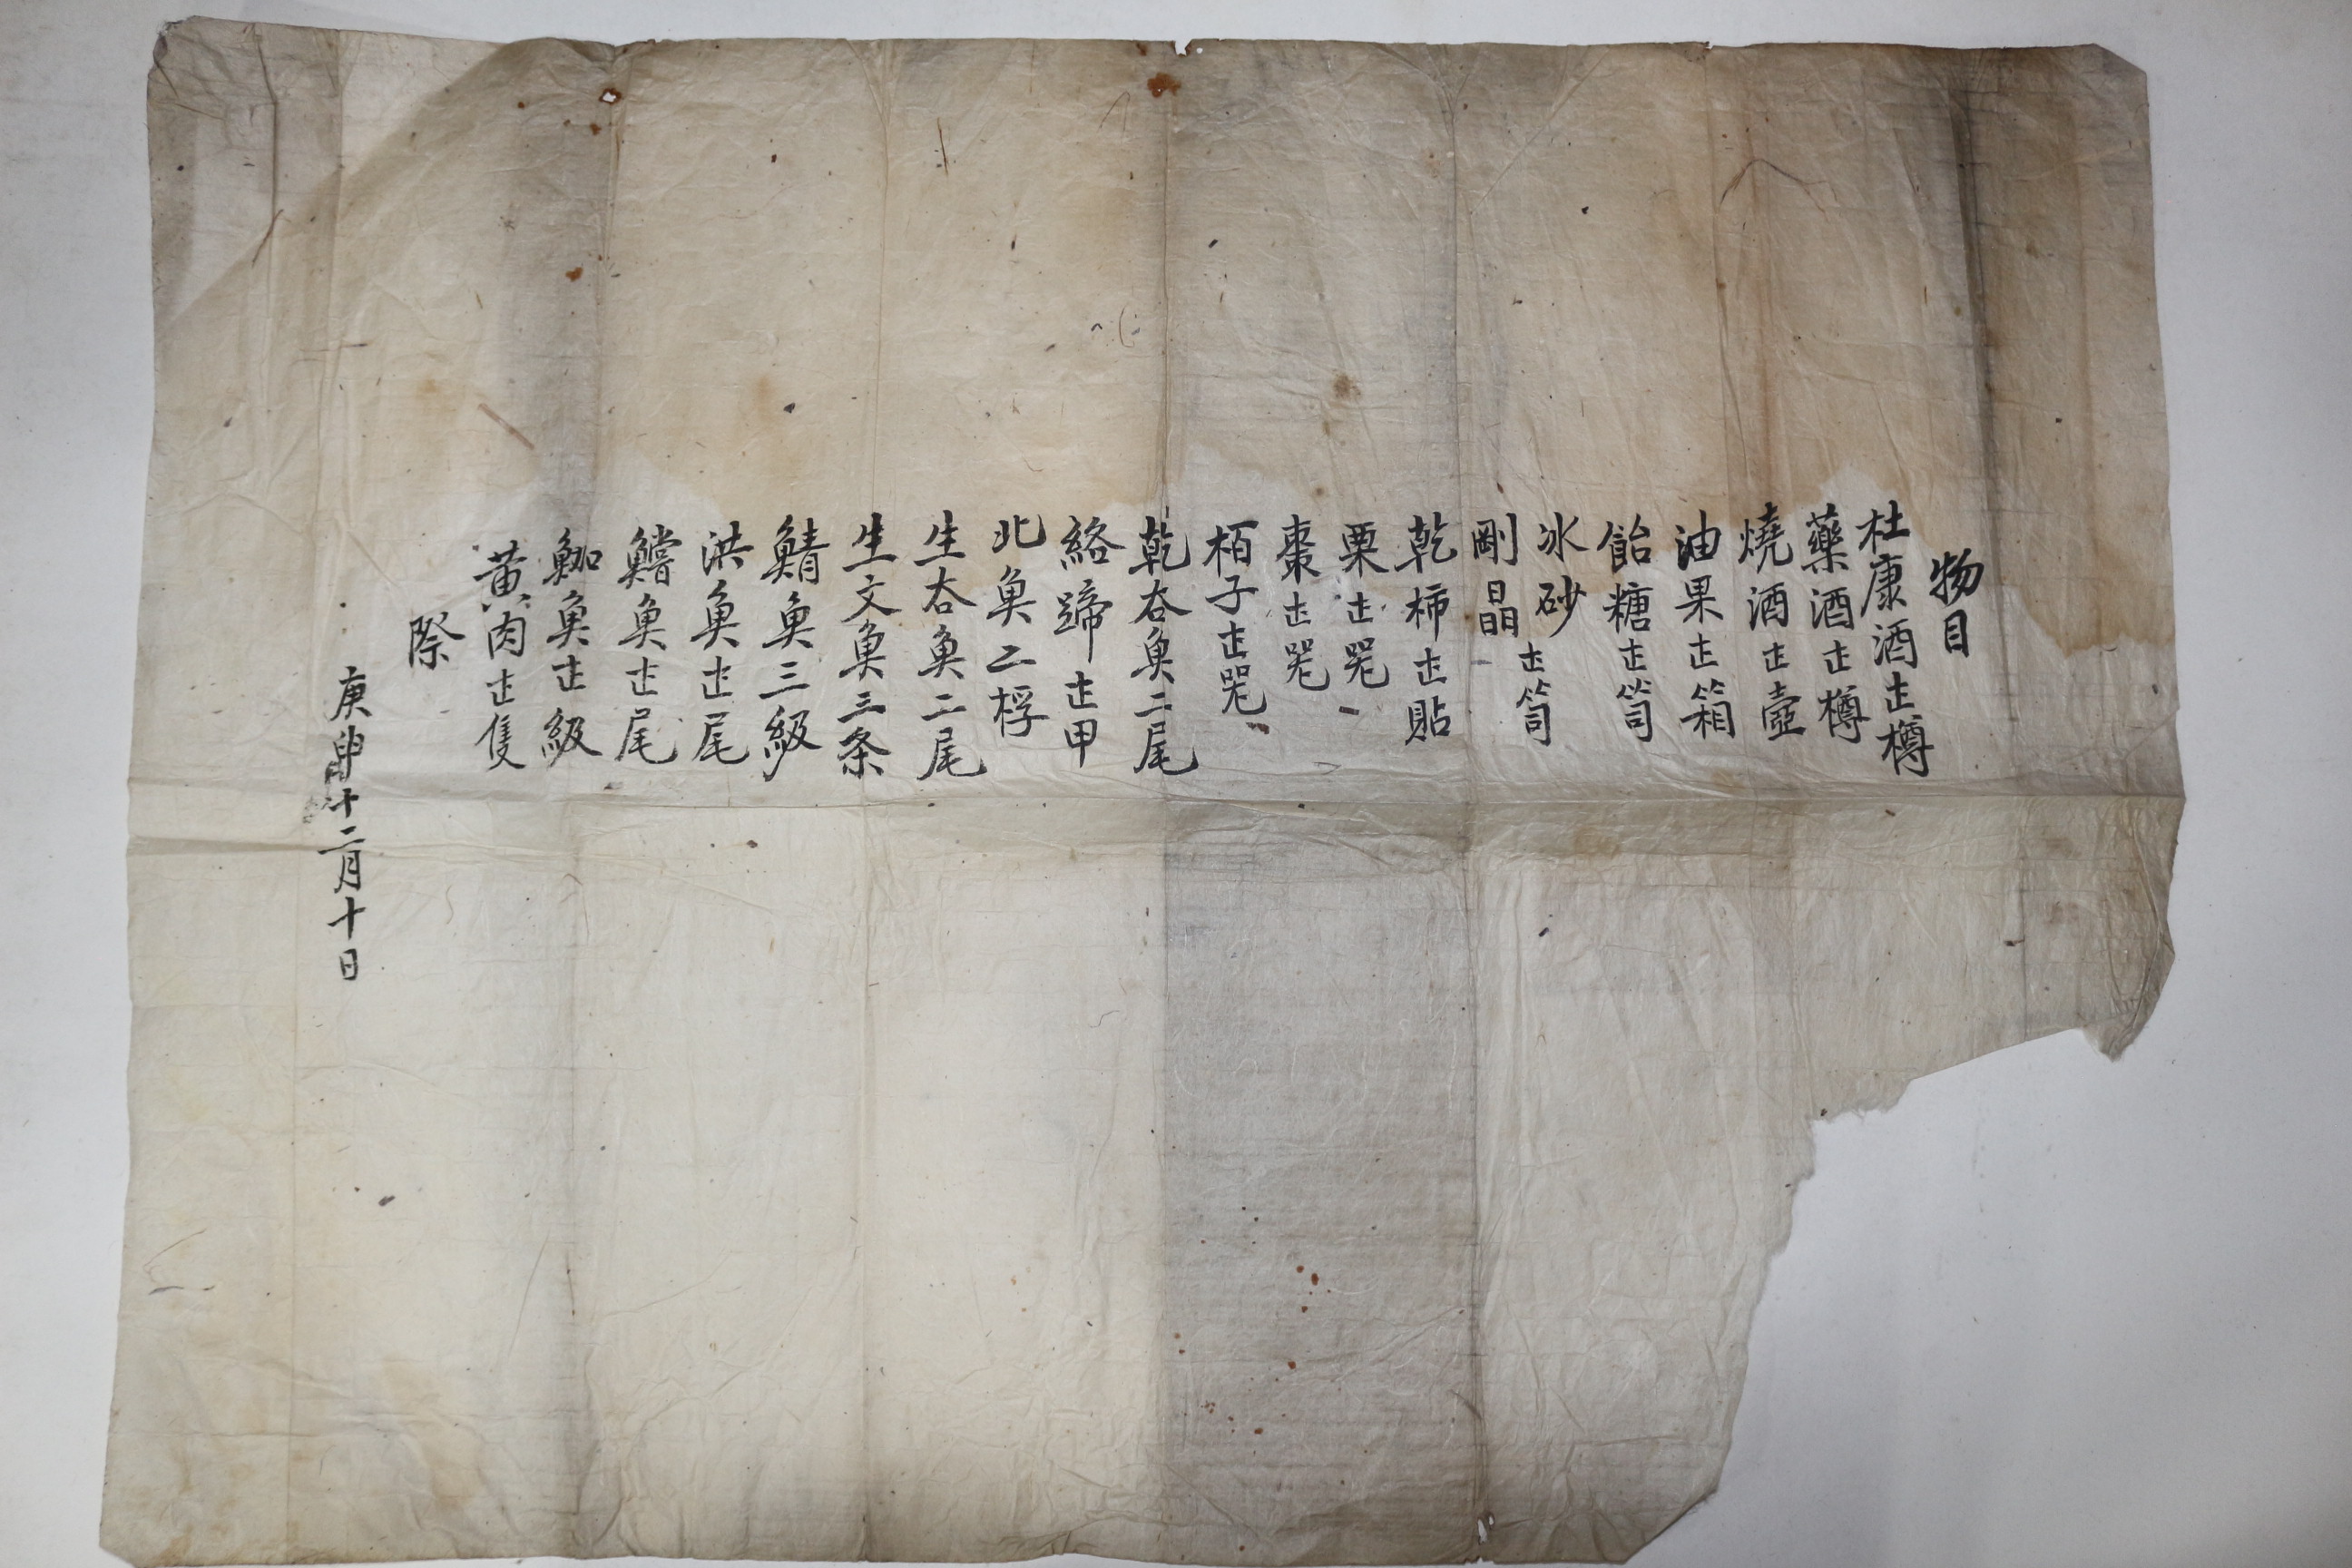 物目
杜康酒壹樽
藥酒壹樽
燒酒壹壺
油果壹箱
飴糖壹笥
氷砂
剛晶
壹笥
乾柿壹貼
栗壹器
棗壹器
栢子壹器
乾夻魚二尾
絡蹄壹甲
北魚二桴
生夻魚二尾
生文魚三条
鯖魚三級
洪魚壹尾
鱨魚壹尾
魚壹級
黃肉壹隻
際
庚申十二月十日